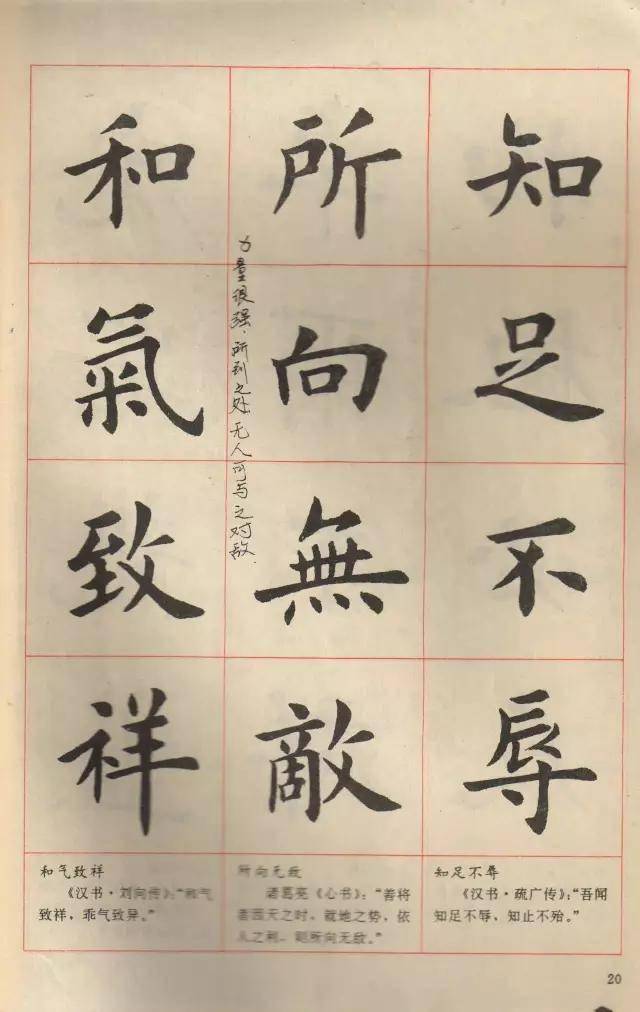 知足不辱
所向無敵
和氣致祥
力量很强，所到之处，无人可与之对敌.
知足不辱
《汉书·疏广传》：“吾闻
知足不辱，知止不殆。”
所向无敌
诸葛亮《心书》：“善将
者因天之时，就地之势，依
人之利，则所向无敌。”
和气致祥
《汉书·刘向传》：“和气
致祥，乖气致异。”
20